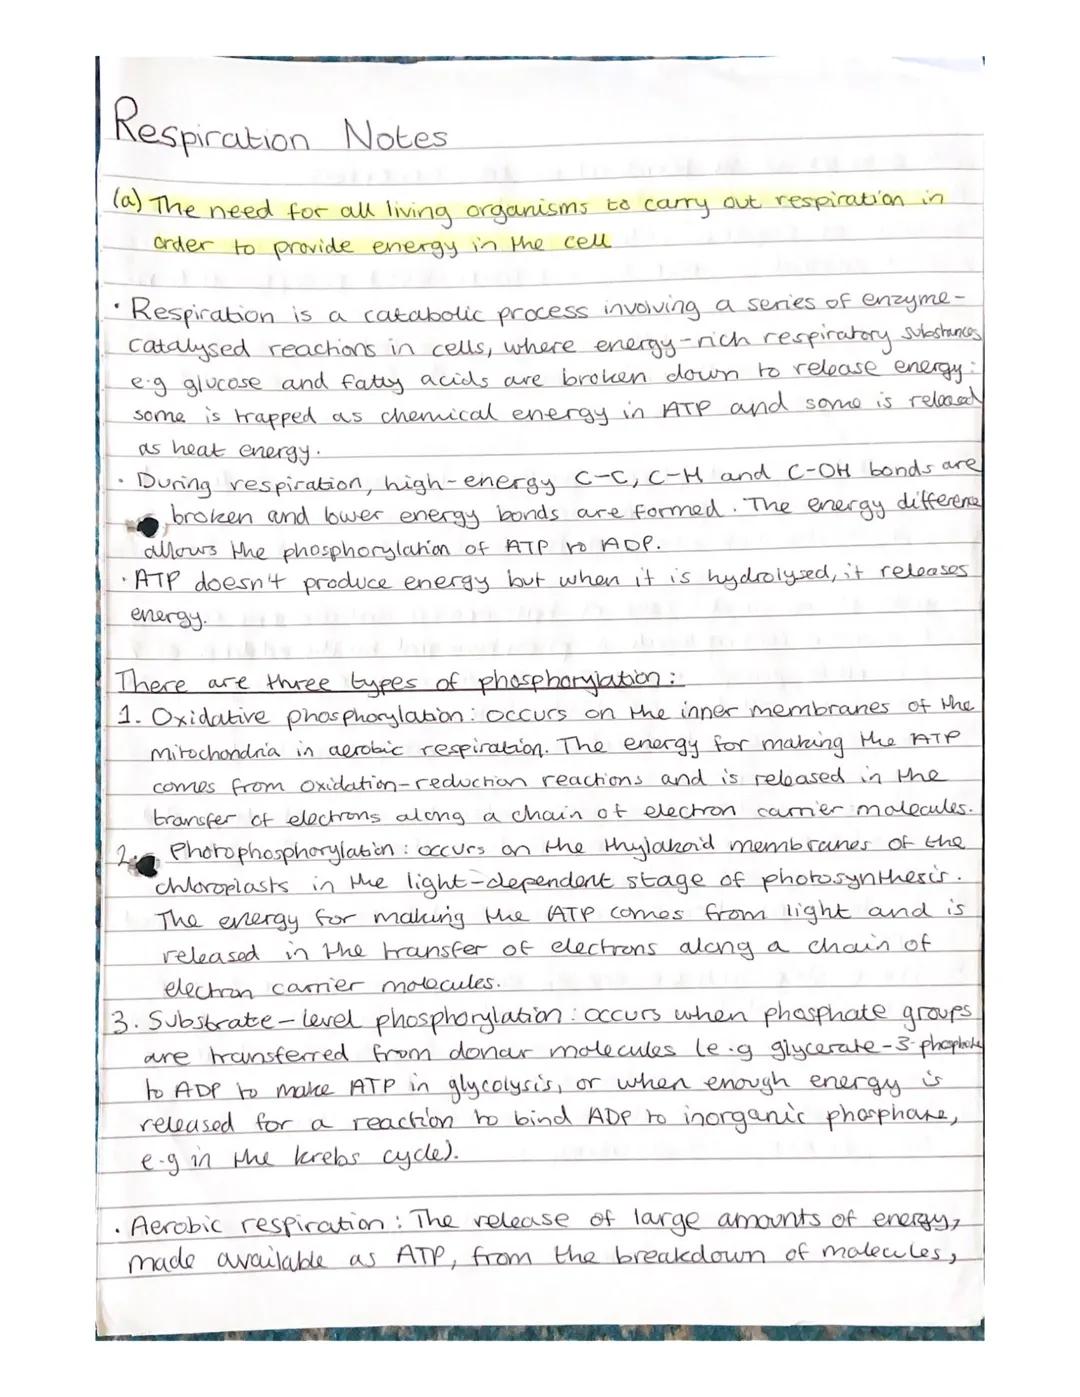 Respiration Notes
(a) The need for all living organisms to carry out respiration in
order to provide energy in the cell
· Respiration is a catabolic process involving a series of enzyme-
catalysed reactions in cells, where energy-rich respiratory substances
e.g glucose and fatty acids are broken down to release energy:
some is trapped as chemical energy in ATP and some is released
as heat energy.
· During respiration, high-energy C-C, C-H and C-OH bonds are
broken and lower energy bonds are formed. The energy difference
allows the phosphorylation of ATP to ADP.
· ATP doesn't produce energy but when it is hydrolysed, it releases
energy.
There are three types of phosphorylation:
1. Oxidative phosphorylation: occurs on the inner membranes of the
mitochondria in aerobic respiration. The energy for making the ATP
comes from oxidation-reduction reactions and is released in the
transfer of electrons along a chain of electron carrier molecules.
2. Photophosphorylation: occurs on the thylakoid membranes of the
chloroplasts in the light-dependent stage of photosynthesis.
The energy for making the ATP comes from light and is
released in the transfer of electrons along a chain of
electron carrier molecules.
3. Substrate-level phosphorylation: occurs when phosphate groups
are transferred from donar molecules (e.g glycerate-3-phosphate
to ADP to make ATP in glycolysis, or when enough energy is
released for a reaction to bind ADP to inorganic phosphate,
e.g in the krebs cycle).
· Aerobic respiration: The release of large amounts of energy,
made available as ATP, from the breakdown of molecules,